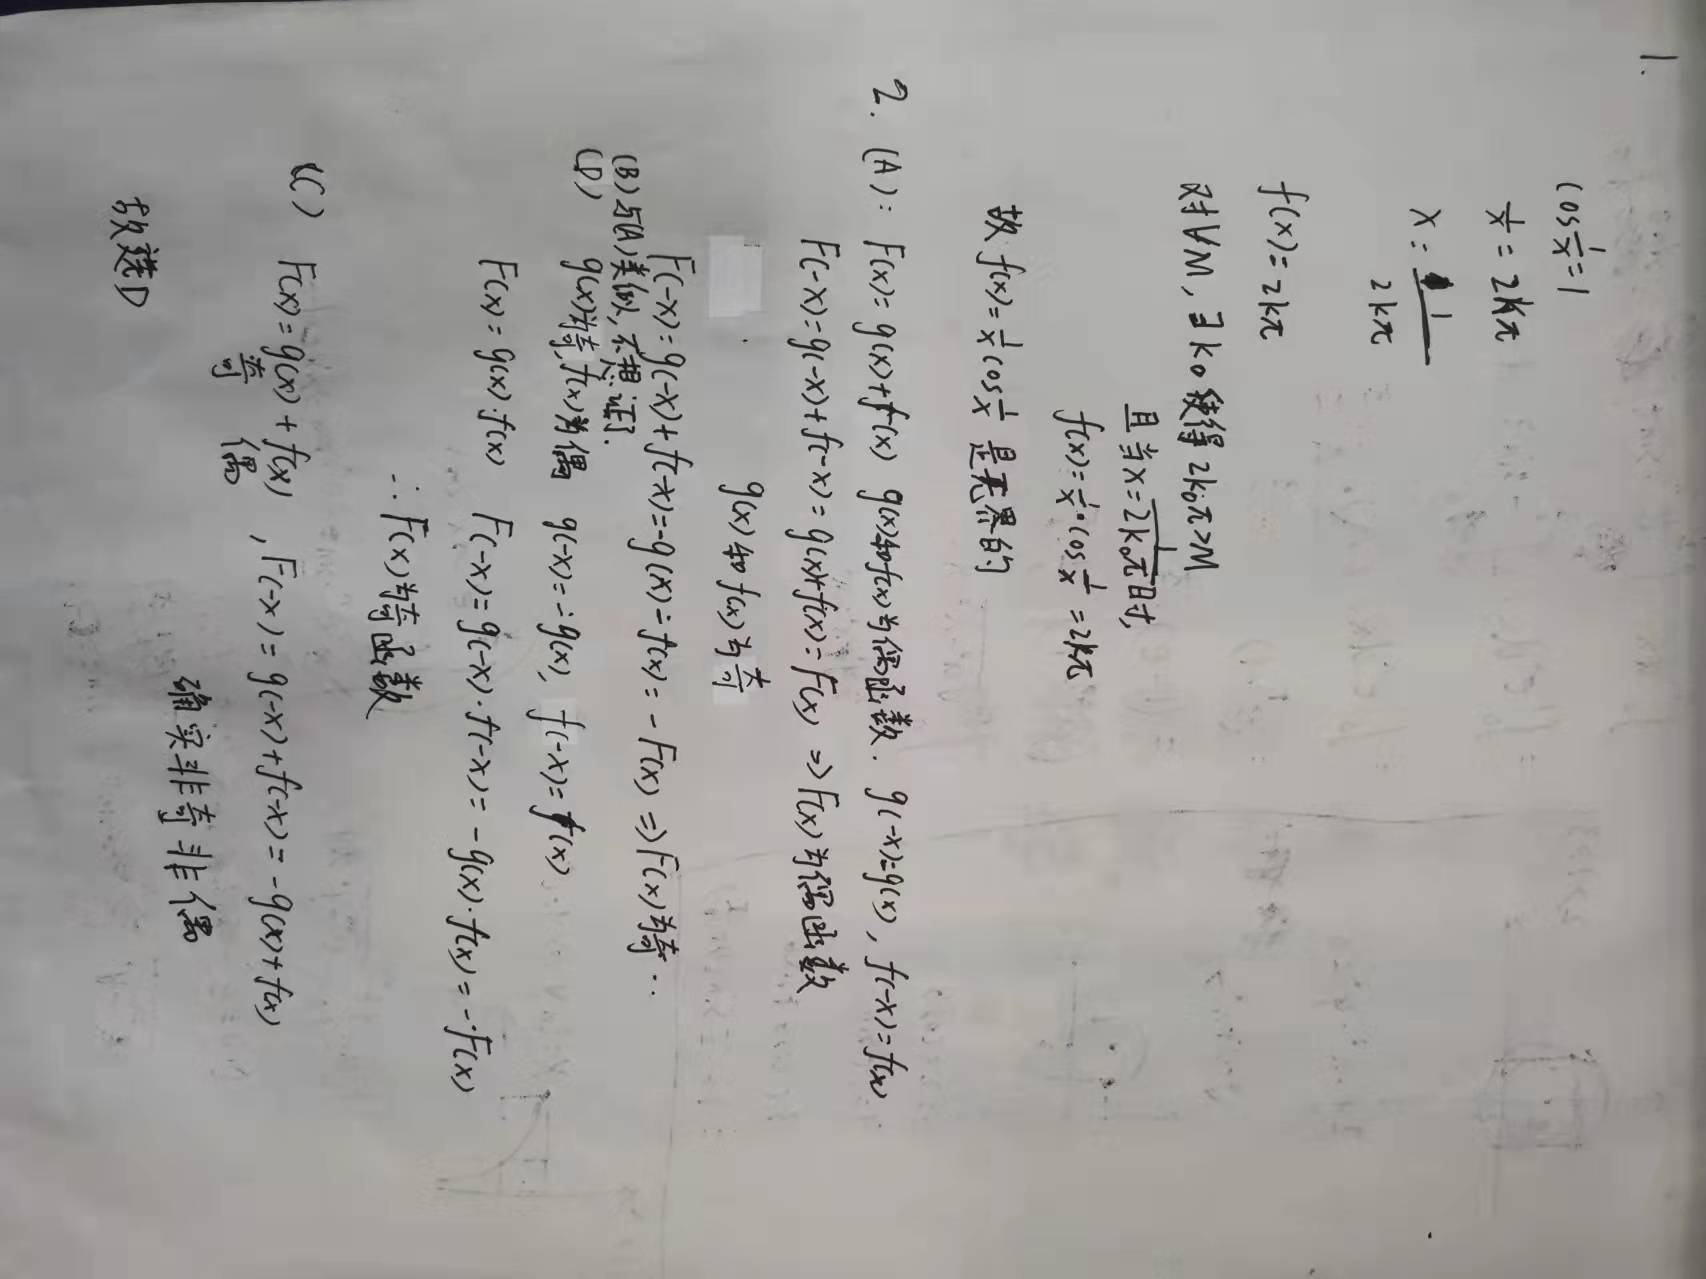 1.
cos 1/x = 1
1/x = 2kπ
x = 1/2kπ
f(x) = 2kπ
对∀M, ∃k₀ 使得 2k₀π>M
且当x=1/2k₀π时,
f(x)=1/x·cos 1/x = 2kπ
故 f(x)=1/x cos 1/x 是无界的
2. (A): F(x)=g(x)+f(x) g(x)和f(x)为偶函数. g(-x)=g(x), f(-x)=f(x)
F(-x)=g(-x)+f(-x)=g(x)+f(x)=F(x) ⇒F(x)为偶函数
g(x)和f(x)为奇
F(-x)=g(-x)+f(-x)=-g(x)-f(x)=-F(x) ⇒F(x)为奇…
(B)与(A)类似, 不想证了.
(D) g(x)为奇, f(x)为偶 g(-x)=-g(x), f(-x)=f(x)
F(x)=g(x)·f(x) F(-x)=g(-x)·f(-x)=-g(x)·f(x)=-F(x)
∴F(x)为奇函数
(C) F(x)=g(x)+f(x), F(-x)=g(-x)+f(-x)=-g(x)+f(x)
奇 偶 确实非奇非偶
故选D